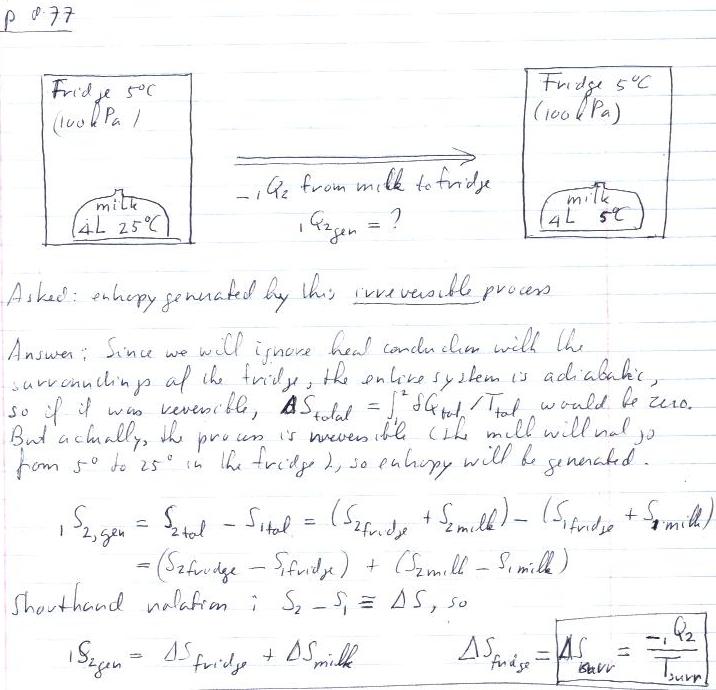 p 8.77
Fridge 5°C
(100kPa)
milk
4L 25°C
-₁Q₂ from milk to fridge
₁Q₂gen = ?
Fridge 5°C
(100kPa)
milk
4L 5°C
Asked: entropy generated by this irreversible process
Answer; Since we will ignore heat conduction with the
surroundings of the fridge, the entire system is adiabatic,
so if it was reversible, ΔS total = ∫² δQ tot / T tot would be zero.
But actually, the process is irreversible (the milk will not go
from 5° to 25° in the fridge), so entropy will be generated.
₁S₂,gen = S₂tot - S₁tot = (S₂fridge + S₂milk) - (S₁fridge + S₁milk)
= (S₂fridge - S₁fridge) + (S₂milk - S₁milk)
Shorthand notation; S₂ - S₁ ≡ ΔS, so
₁S₂gen = ΔS fridge + ΔS milk ΔS fridge = ΔS surr = -₁Q₂ / T surr